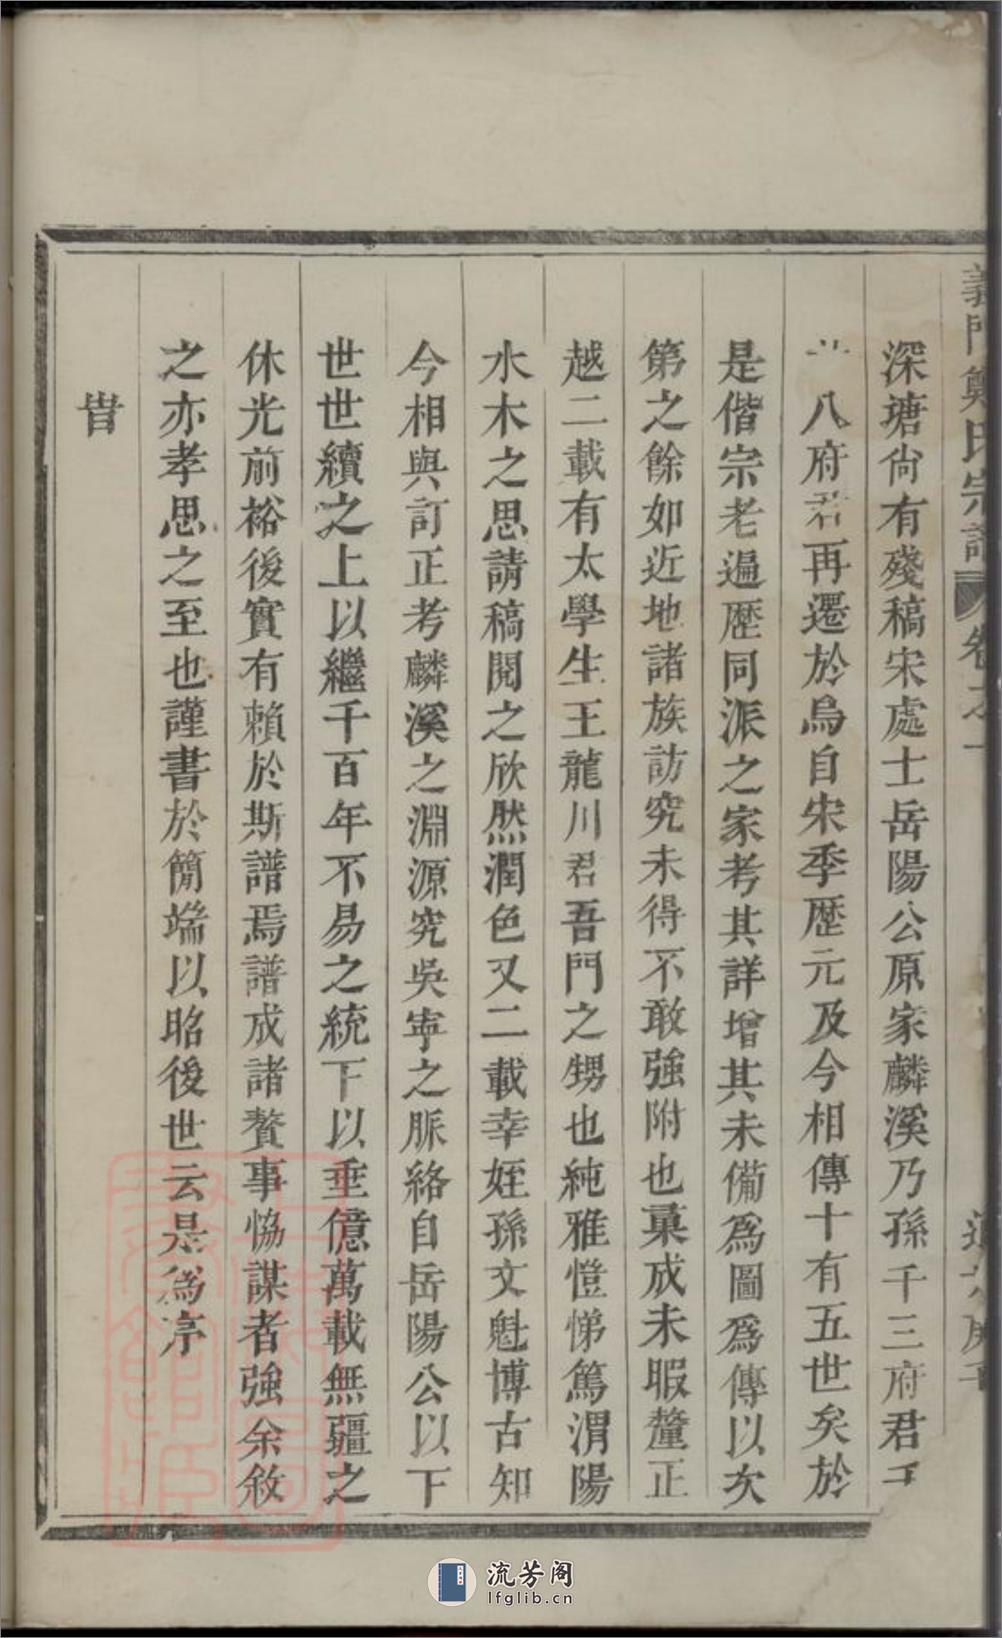 義門鄭氏宗譜 卷之一
深瑭尙有殘稿宋處士岳陽公原家麟溪乃孫千三府君
八府君再遷於烏自宋季歷元及今相傳十有五世矣於
是偕宗老遍歷同派之家考其詳增其未備爲圖爲傳以次
第之餘如近地諸族訪究未得不敢強附也藁成未暇釐正
越二載有太學生王龍川君吾門之甥也純雅愷悌篤渭陽
水木之思請稿閱之欣然潤色又二載幸姪孫文魁博古知
今相與訂正考麟溪之淵源究吳寕之脈絡自岳陽公以下
世世續之上以繼千百年不易之統下以垂億萬載無疆之
休光前裕後實有賴於斯譜焉譜成諸贊事恊謀者強余敘
之亦孝思之至也謹書於簡端以昭後世云是爲序
旹
流芳阁
lfglib.cn